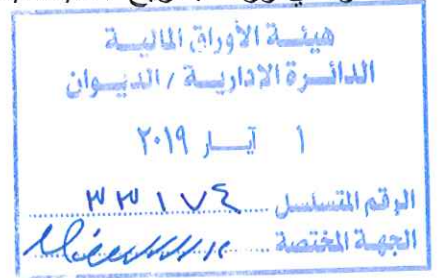 هيئة الأوراق المالية
الدائرة الادارية / الديوان
١ آيار ٢٠١٩
الرقم المتسلسل ٣٣١٧٤
الجهة المختصة